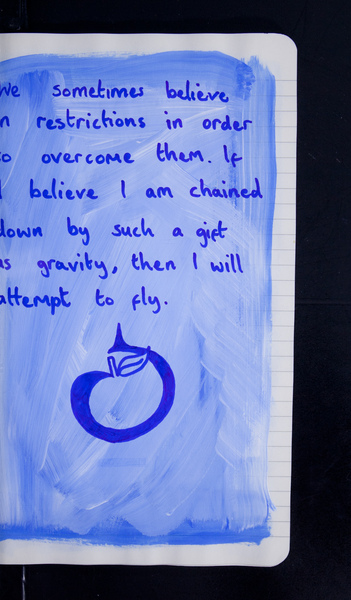 We sometimes believe
n restrictions in order
o overcome them. If
I believe I am chained
down by such a gift
as gravity, then I will
attempt to fly.